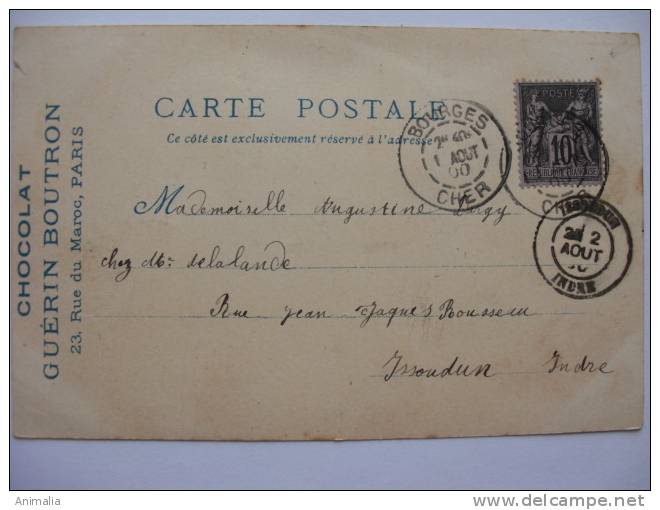 CHOCOLAT
GUÉRIN BOUTRON
23, Rue du Maroc, PARIS
CARTE POSTALE
Ce côté est exclusivement réservé à l'adresse
POSTE
10
BOURGES
1 AOUT
00
CHER
CHER
2
AOUT
INDRE
Mademoiselle Augustine
chez Mr. delalande
Rue jean Jaques Rousseau
Issoudun Indre
Animalia
www.delcampe.net